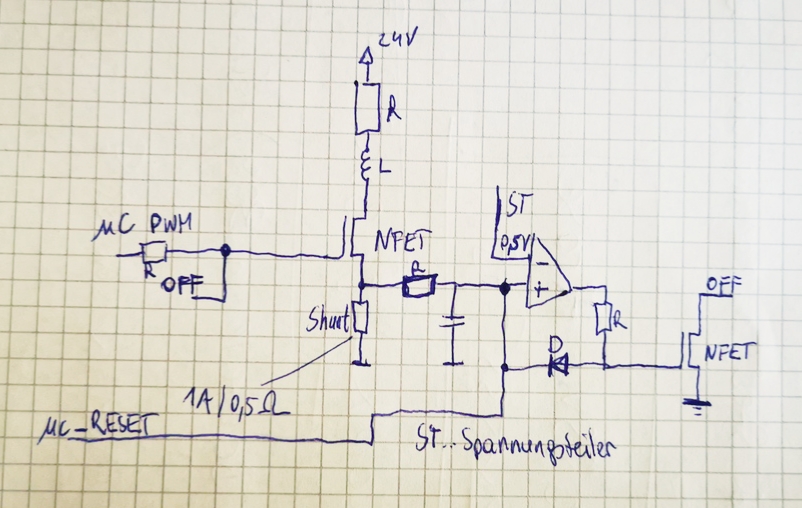 24V
R
L
µC PWM
R
OFF
NFET
ST
0,5V
-
+
R
Shunt
1A/0,5Ω
R
D
OFF
NFET
µC_RESET
ST...Spannungsteiler